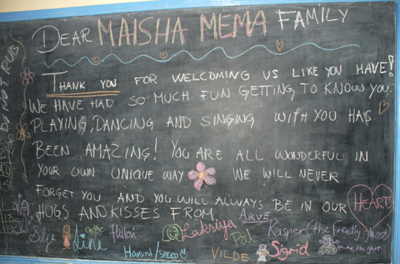 DEAR MAISHA MEMA FAMILY
THANK YOU FOR WELCOMING US LIKE YOU HAVE!
WE HAVE HAD SO MUCH FUN GETTING TO KNOW YOU.
PLAYING, DANCING AND SINGING WITH YOU HAS
BEEN AMAZING! YOU ARE ALL WONDERFUL IN
YOUR OWN UNIQUE WAY WE WILL NEVER
FORGET YOU AND YOU WILL ALWAYS BE IN OUR HEART!
HUGS AND KISSES FROM,
Silje Line Lakriya Pål Kasper (the friendly
VILDE Sigrid